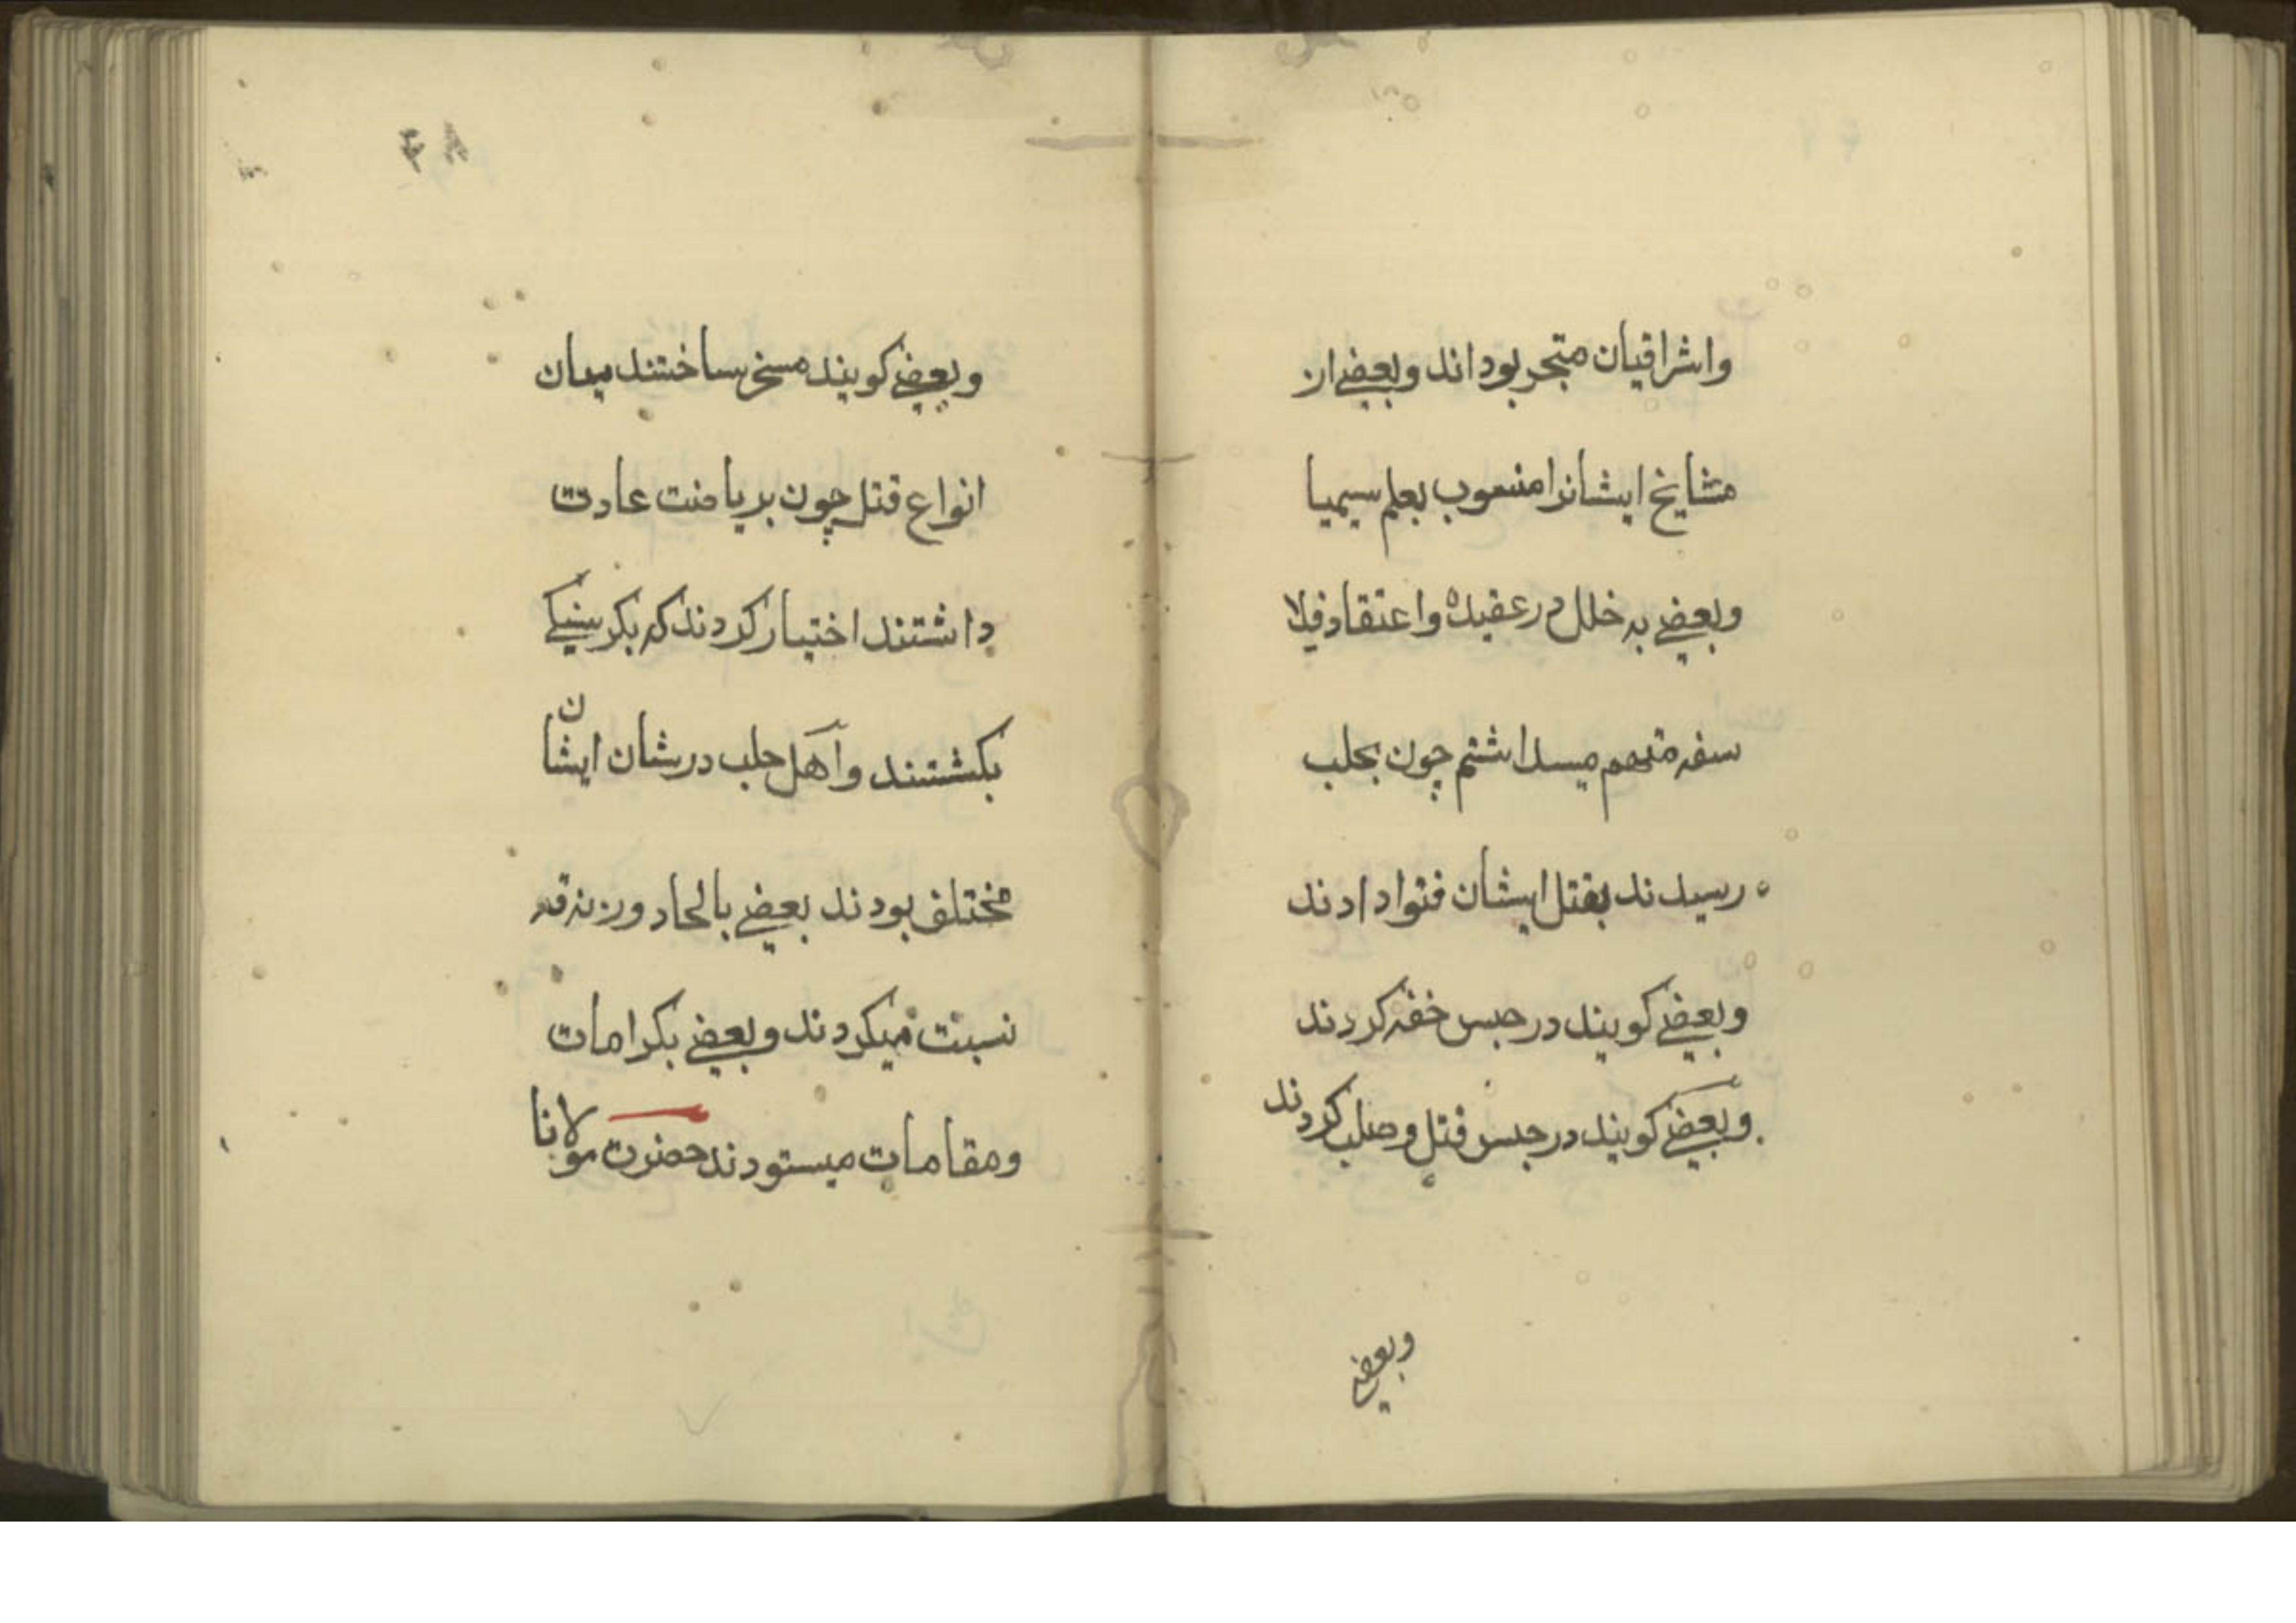 واشراقیان متبحر بوداند وبعضے از
مشایخ ایشانرا منسوب بعلم سیمیا
وبعضے بہ خلل در عقیدہ واعتقاد فلا
سفہ متهم میداشتم چون بحلب
رسیدند بقتل ایشان فتوا دادند
وبعضے کویند در حبس خفہ کردند
وبعضے کویند در حبس قتل وصلب کردند
وبعضے
۸۴
وبعضے کویند مسخر ساختند میان
انواع قتل چون بریاضت عادت
داشتند اختیار کردند کہ بکرسنکے
بکشتند واهل حلب در شان ایشان
مختلف بودند بعضے بالحاد وزندقہ
نسبت میکردند وبعضے بکرامات
ومقامات میستودند حضرت مولانا